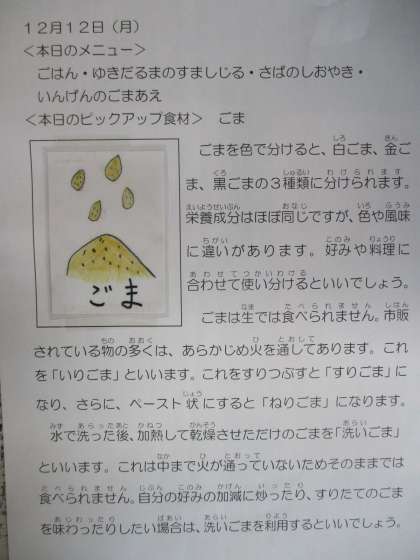 １２月１２日（月）
＜本日のメニュー＞
ごはん・ゆきだるまのすましじる・さばのしおやき・
いんげんのごまあえ
＜本日のピックアップ食材＞　ごま
ごま
ごまを色で分けると、白ごま、金ご
ま、黒ごまの３種類に分けられます。
栄養成分はほぼ同じですが、色や風味
に違いがあります。好みや料理に
合わせて使い分けるといいでしょう。
ごまは生では食べられません。市販
されている物の多くは、あらかじめ火を通してあります。これ
を「いりごま」といいます。これをすりつぶすと「すりごま」に
なり、さらに、ペースト状にすると「ねりごま」になります。
水で洗った後、加熱して乾燥させただけのごまを「洗いごま」
といいます。これは中まで火が通っていないためそのままでは
食べられません。自分の好みの加減に炒ったり、すりたてのごま
を味わったりしたい場合は、洗いごまを利用するといいでしょう。